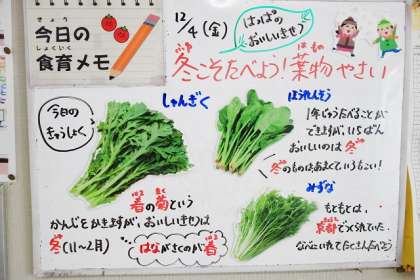 きょう
今日の
しょくいく
食育メモ
12/4(金)
はっぱの
おいしいきせつ
ふゆ はもの
冬こそたべよう!葉物やさい
今日の
きゅうしょく
しゅんぎく
はる きく
春の菊という
かんじをかきますが、おいしいきせつは
ふゆ
冬(11〜2月)
はる
はながさくのが春
ほうれんそう
1年じゅうたべることが
できますが、いちばん
ふゆ
おいしいのは 冬
ふゆ
冬のものは、あまくていろもこい!
みずな
もともとは、
きょうと
京都でつくられていた。
なべにいれてたくさんたべよう